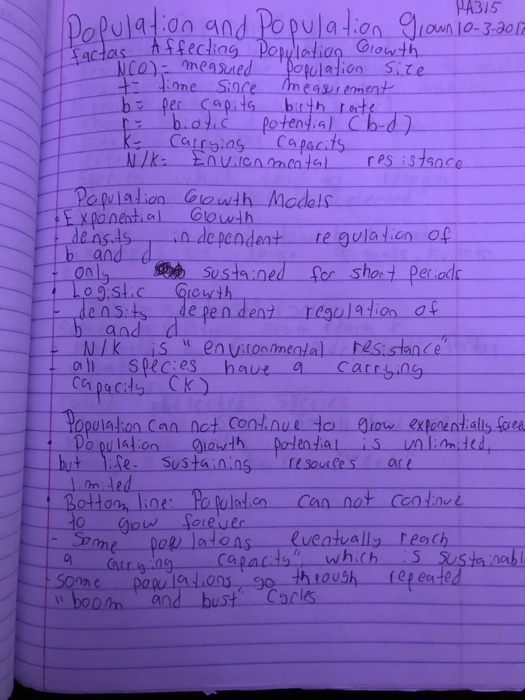 PA315
Population and Population grown 10-3-2017
factas Affecting Population Growth
N(O)- measured population size
t= time since measurement
b= per capita birth rate
r= biotic potential (b-d)
K= Carrying Capacity
N/K= Environmental resistance
Population Growth Models
• Exponential Growth
- density independent regulation of
b and d
- only sustained for short periods
• Logistic Growth
- density dependent regulation of
b and d
- N/K is "environmental resistance"
- all species have a carrying
capacity (K)
Population can not continue to grow exponentially
• Population growth potential is unlimited,
but life-sustaining resources are
limited
• Bottom line: Population can not continue
to grow forever
- Some populations eventually reach
a "carrying capacity" which is sustainabl
- some populations go through repeated
"boom and bust" cycles